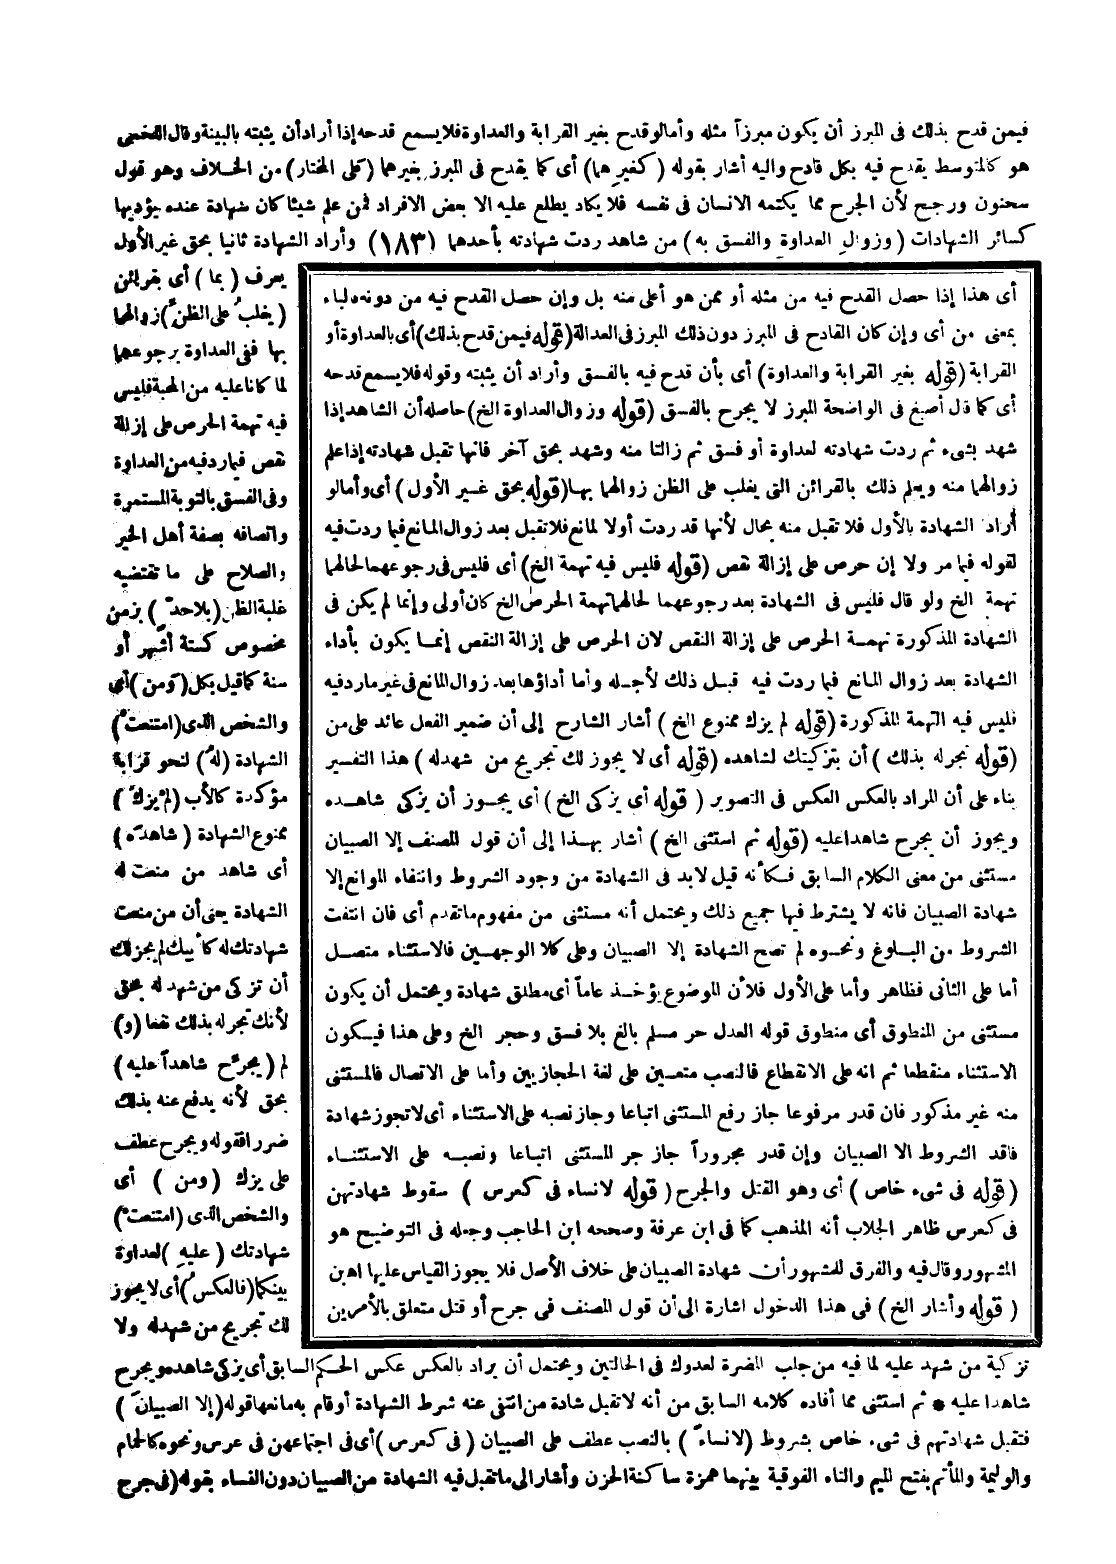 فيمن قدح بذلك فى المبرز أن يكون مبرزاً مثله وأمالو قدح بغير القرابة والعداوة فلا يسمع قدحه إذا أراد أن يثبته بالبينة وقال اللخمى
هو كالمتوسط يقدح فيه بكل قادح واليه أشار بقوله (كغيرِها) أى كما يقدح فى المبرز بغيرهما (على المختار) من الخلاف وهو قول
سحنون ورجح لأن الجرح مما يكتمه الانسان فى نفسه فلا يكاد يطلع عليه الا بعض الافراد فمن علم شيئا كان شهادة عنده يؤديها
كسائر الشهادات (وزوال العداوةِ والفسق به) من شاهد ردت شهادته بأحدها (١٨٣) وأراد الشهادة ثانيا بحق غير الأول
يعرف (بما) أى بقرائن
(يغلبُ على الظنِّ) زوالهما
بها ففى العداوة برجوعهما
لما كانا عليه من المحبة فليس
فيه تهمة الحرص على إزالة
نقص فيما رد فيه من العداوة
وفى الفسق بالتوبة المستمرة
واتصافه بصفة أهل الخير
والصلاح على ما تقتضيه
غلبة الظن (بلاحدٍّ) بزمن
مخصوص كستة أشهر أو
سنة كما قيل بكل (وَمن) أى
والشخص الذى (امتنعتْ)
الشهادة (لهُ) لنحو قرابة
مؤكدة كالأب (لمْ يزكِّ)
ممنوع الشهادة (شاهدَه)
أى شاهد من منعت له
الشهادة يعنى أن من منعت
شهادتك له كأبيك لم يجز لك
أن تزكى من شهد له بحق
لأنك تجر له بذلك نفعا (و)
لم (يجرِّح شاهداً عليه)
بحق لأنه يدفع عنه بذلك
ضررا فقوله ويجرح عطف
على يزك (ومن) أى
والشخص الذى (امتنعتْ)
شهادتك (عليهِ) لعداوة
بينكما (فالعكسُ) أى لا يجوز
لك تجريح من شهد له ولا
أى هذا إذا حصل القدح فيه من مثله أو ممن هو أعلى منه بل وإن حصل القدح فيه من دونه فالباء
بمعنى من أى وإن كان القادح فى المبرز دون ذلك المبرز فى العدالة (قوله فيمن قدح بذلك) أى بالعداوة أو
القرابة (قوله بغير القرابة والعداوة) أى بأن قدح فيه بالفسق وأراد أن يثبته وقوله فلا يسمع قدحه
أى كما قال أصبغ فى الواضحة المبرز لا يجرح بالفسق (قوله وزوال العداوة الخ) حاصله أن الشاهد إذا
شهد بشىء ثم ردت شهادته لعداوة أو فسق ثم زالتا منه وشهد بحق آخر فانها تقبل شهادته إذا علم
زوالهما منه ويعلم ذلك بالقرائن التى يغلب على الظن زوالهما بها (قوله بحق غير الأول) أى وأمالو
أراد الشهادة بالأول فلا تقبل منه بحال لأنها قد ردت أولا لمانع فلا تقبل بعد زوال المانع فيما ردت فيه
لقوله فيما مر ولا إن حرص على إزالة نقص (قوله فليس فيه تهمة الخ) أى فليس فى رجوعهما لحالهما
تهمة الخ ولو قال فليس فى الشهادة بعد رجوعهما لحالهما تهمة الحرص الخ كان أولى وإنما لم يكن فى
الشهادة المذكورة تهمة الحرص على إزالة النقص لان الحرص على إزالة النقص إنما يكون بأداء
الشهادة بعد زوال المانع فيما ردت فيه قبل ذلك لأجله وأما أداؤها بعد زوال المانع فى غير ما رد فيه
فليس فيه التهمة المذكورة (قوله لم يزك ممنوع الخ) أشار الشارح إلى أن ضمير الفعل عائد على من
(قوله تجر له بذلك) أن بتزكيتك لشاهده (قوله أى لا يجوز لك تجريح من شهد له) هذا التفسير
بناء على أن المراد بالعكس العكس فى التصوير (قوله أى يزكى الخ) أى يجوز أن يزكى شاهده
ويجوز أن يجرح شاهدا عليه (قوله ثم استثنى الخ) أشار بهذا إلى أن قول المصنف إلا الصبيان
مستثنى من معنى الكلام السابق فكأنه قيل لابد فى الشهادة من وجود الشروط وانتفاء الموانع إلا
شهادة الصبيان فانه لا يشترط فيها جميع ذلك ويحتمل أنه مستثنى من مفهوم ما تقدم أى فان انتفت
الشروط من البلوغ ونحوه لم تصح الشهادة إلا الصبيان وعلى كلا الوجهين فالاستثناء متصل
أما على الثانى فظاهر وأما على الأول فلأن الموضوع يؤخذ عاماً أى مطلق شهادة ويحتمل أن يكون
مستثنى من المنطوق أى منطوق قوله العدل حر مسلم بالغ بلا فسق وحجر الخ وعلى هذا فيكون
الاستثناء منقطعا ثم انه على الانقطاع فالنصب متعين على لغة الحجازيين وأما على الاتصال فالمستثنى
منه غير مذكور فان قدر مرفوعا جاز رفع المستثنى اتباعا وجاز نصبه على الاستثناء أى لا تجوز شهادة
فاقد الشروط الا الصبيان وإن قدر مجروراً جاز جر المستثنى اتباعا ونصبه على الاستثناء
(قوله فى شىء خاص) أى وهو القتل والجرح (قوله لا نساء فى كعرس) سقوط شهادتهن
فى كعرس ظاهر الجلاب أنه المذهب كما فى ابن عرفة وصححه ابن الحاجب وجعله فى التوضيح هو
المشهور وقال فيه والفرق للمشهور أن شهادة الصبيان على خلاف الأصل فلا يجوز القياس عليها اه بن
(قوله وأشار الخ) فى هذا الدخول اشارة الى أن قول المصنف فى جرح أو قتل متعلق بالأمرين
تزكية من شهد عليه لما فيه من جلب المضرة لعدوك فى الحالتين ويحتمل أن يراد بالعكس عكس الحكم السابق أى يزكى شاهده ويجرح
شاهدا عليه * ثم استثنى مما أفاده كلامه السابق من أنه لا تقبل شادة من انتفى عنه شرط الشهادة أو قام به مانعها قوله (إلا الصبيانَ)
فتقبل شهادتهم فى شىء خاص بشروط (لا نساءً) بالنصب عطف على الصبيان (فى كعرس) أى فى اجتماعهن فى عرس ونحوه كالحمام
والوليمة والمأتم بفتح الميم والتاء الفوقية بينهما همزة ساكنة الحزن وأشار الى ما تقبل فيه الشهادة من الصبيان دون النساء بقوله (فى جرح